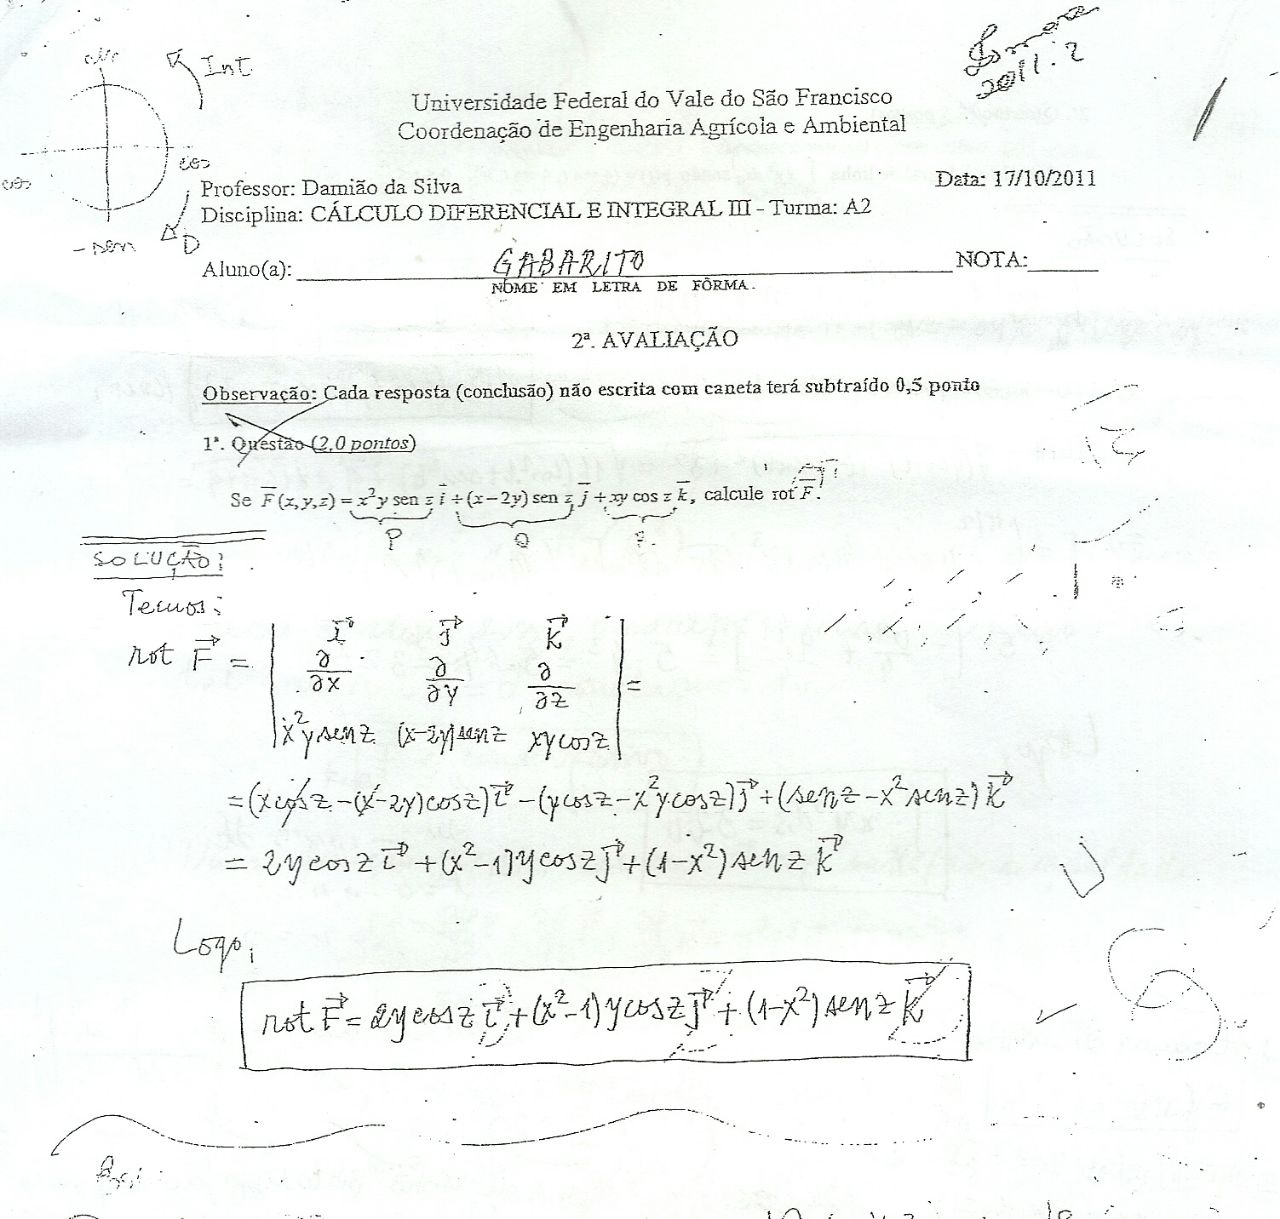 Int
2011.2
Universidade Federal do Vale do São Francisco
Coordenação de Engenharia Agrícola e Ambiental
cos
cos
Professor: Damião da Silva
Data: 17/10/2011
Disciplina: CÁLCULO DIFERENCIAL E INTEGRAL III - Turma: A2
- sen
D
Aluno(a): GABARITO NOTA:
NOME EM LETRA DE FÔRMA.
2ª. AVALIAÇÃO
Observação: Cada resposta (conclusão) não escrita com caneta terá subtraído 0,5 ponto
1ª. Questão (2,0 pontos)
Se F⃗(x,y,z) = x²y sen z i⃗ + (x − 2y) sen z j⃗ + xy cos z k⃗, calcule rot F⃗.
P Q
SOLUÇÃO:
Temos:
rot F⃗ = | i⃗ j⃗ k⃗
∂/∂x ∂/∂y ∂/∂z
x²y sen z (x-2y) sen z xy cos z | =
= (x cos z - (x-2y) cos z) i⃗ - (y cos z - x²y cos z) j⃗ + (sen z - x² sen z) k⃗
= 2y cos z i⃗ + (x²-1) y cos z j⃗ + (1-x²) sen z k⃗
Logo,
rot F⃗ = 2y cos z i⃗ + (x²-1) y cos z j⃗ + (1-x²) sen z k⃗